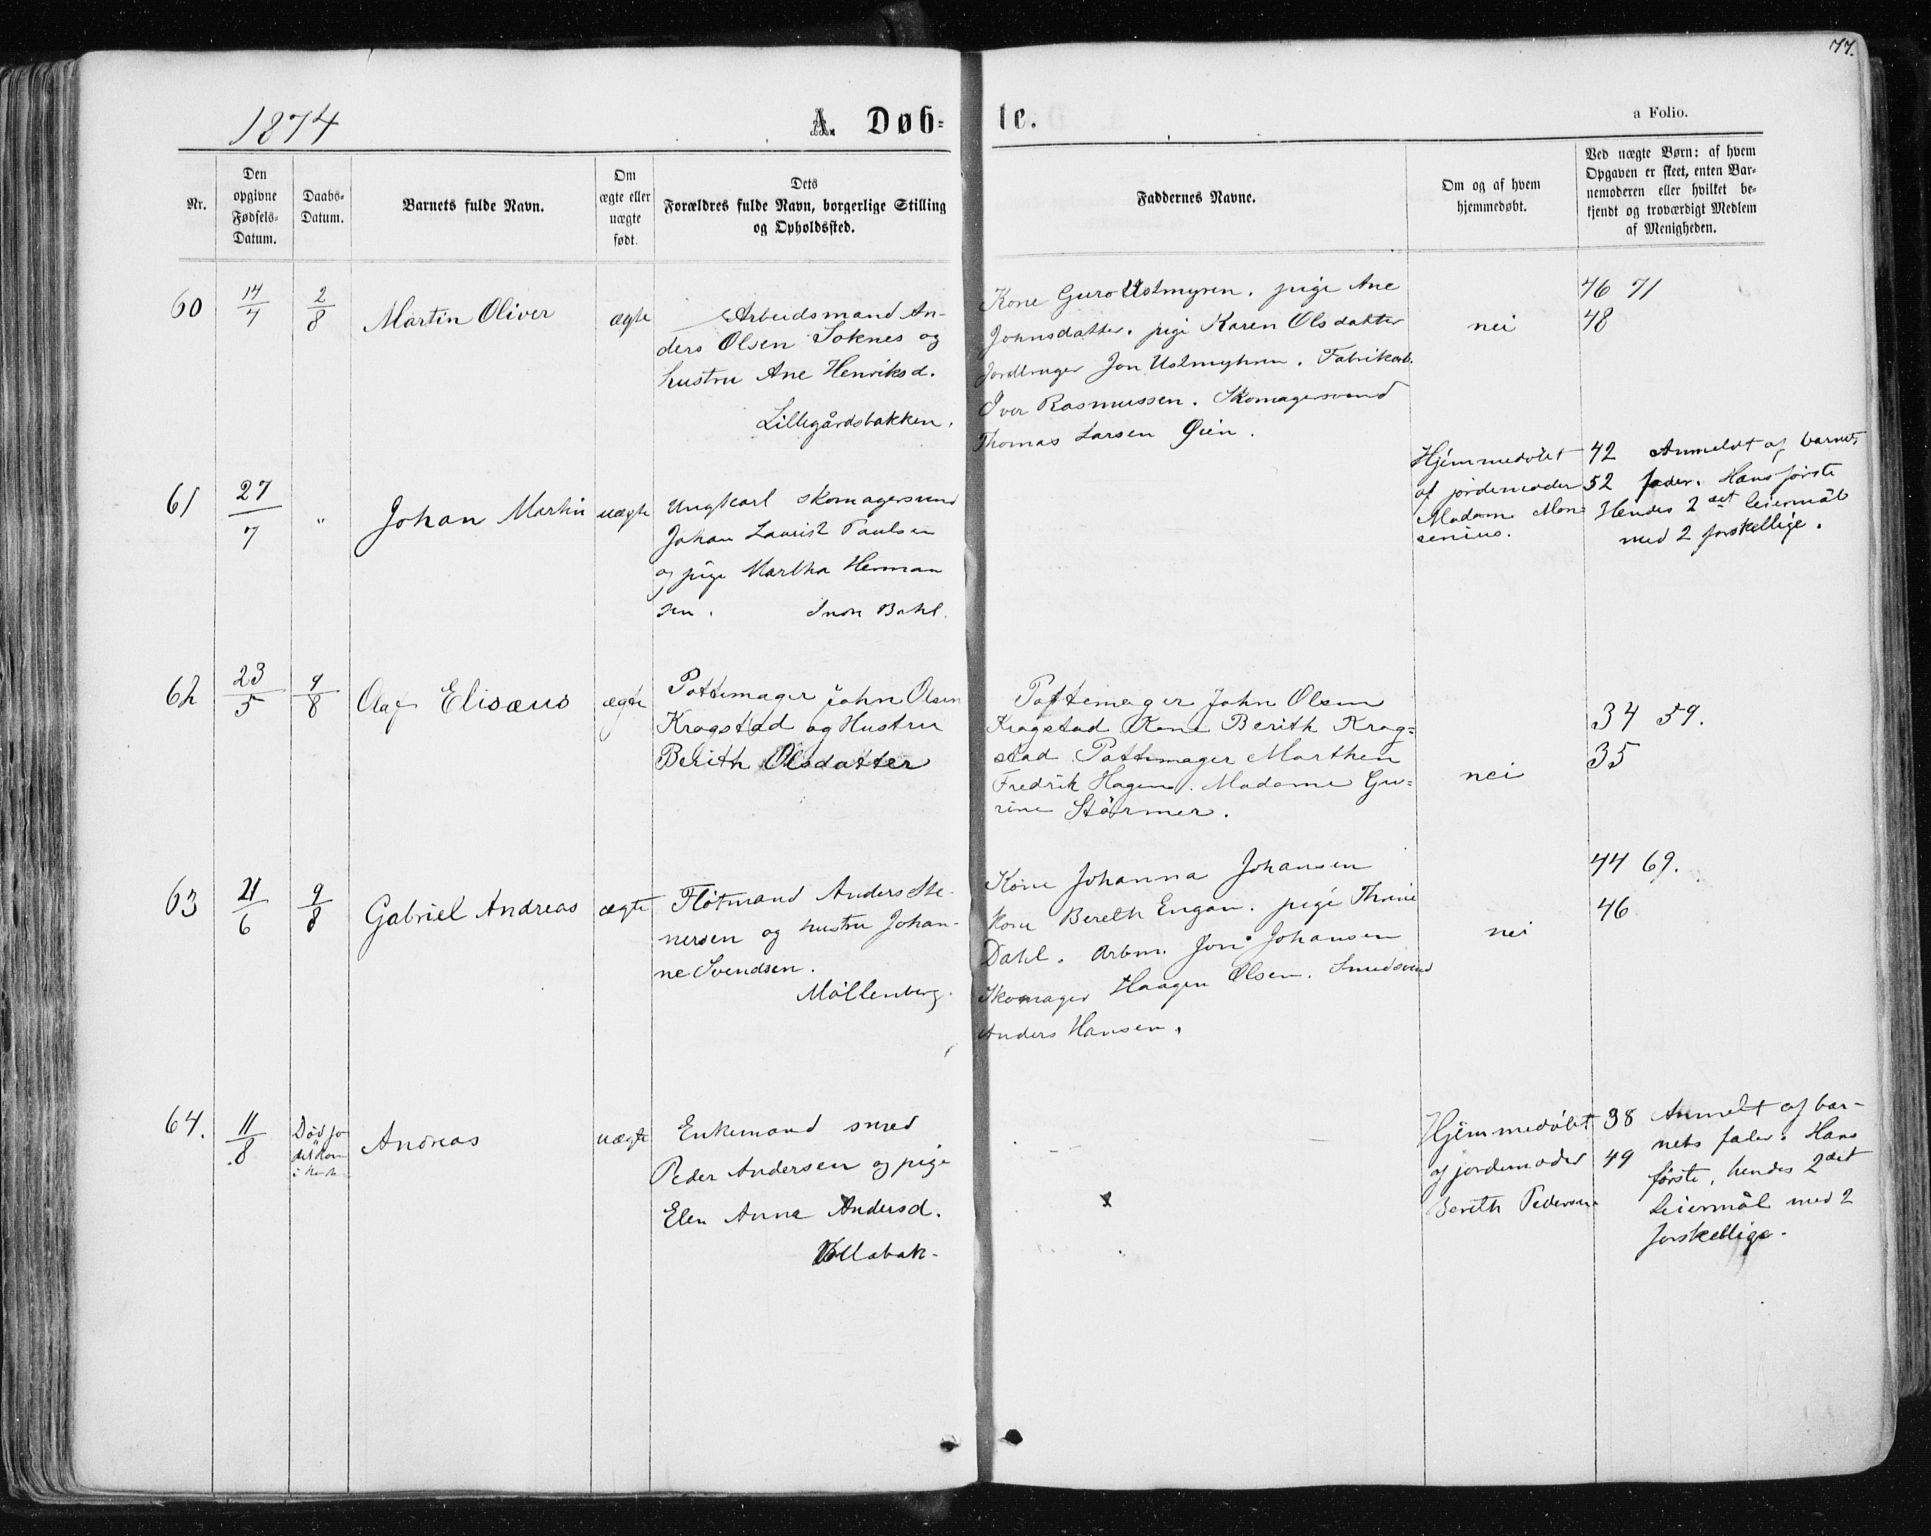 77.
1874
A. Døb-
te.
a Folio.
Nr.
Den
opgivne
Fødsels-
Datum.
Daabs-
Datum.
Barnets fulde Navn.
Om
ægte eller
uægte
født.
Dets
Forældres fulde Navn, borgerlige Stilling
og Opholdssted.
Faddernes Navne.
Om og af hvem
hjemmedøbt.
Ved uægte Børn: af hvem
Opgaven er skeet, enten Bar-
nemoderen eller hvilket be-
kjendt og troværdigt Medlem
af Menigheden.
60
2/8
Martin Oliver
ægte
Arbeidsmand An-
ders Olsen Soknes og
hustru Ane Henriksd.
Lillegårdsbakken.
Kone Guro Ustmyren. pige Ane
Johnsdatter. pige Karen Olsdatter
Jordbruger Jon Ustmyhren. Fabrikarb.
Iver Rasmussen. Skomagersvend
Thomas Larsen Øien.
nei
46 71
48
61
27/7
"
Johan Martin
uægte
Ungkarl skomagersvend
Johan Laurist Paulsen
og pige Martha Herman
sen. Bakl.
Hjemmedöbt
af jordemoder
Madam Mon
senius.
42 Anmeldt af barnets
52 fader. Hans förste
Hendes 2det leiermål
med 2 forskellige.
62
23/5
9/8
Olaf Elisæus
ægte
Pottemager John Olsen
Kragstad og Hustru
Berith Olsdatter
Pottemager John Olsen
Kragstad Kone Berith Krag-
stad Pottemager Marthen
Fredrik Hagen. Madame Gu-
rine Störmer.
nei
34 59.
35
63
21/6
9/8
Gabriel Andreas
ægte
Flötmand Anders Ste-
nersen og hustru Johan-
ne Svendsen.
Möllenberg.
Kone Johanna Johansen
Kone Bereth Engan. pige Thrine
Dahl. Arbm. Jon Johansen
Skomager Haagen Olsen. Smedsvend
Anders Hansen.
nei
44 69.
46
64.
11/8
Död
Andreas
uægte
Enkemand smed
Peder Andersen og pige
Elen Anna Andersd.
Vollabak-
x
Hjemmedöbt
af jordemoder
Bereth Pedersen
38 Anmelt af bar-
49 nets fader. Hans
förste, hendes 2det
Leiermål med 2
forskellige.